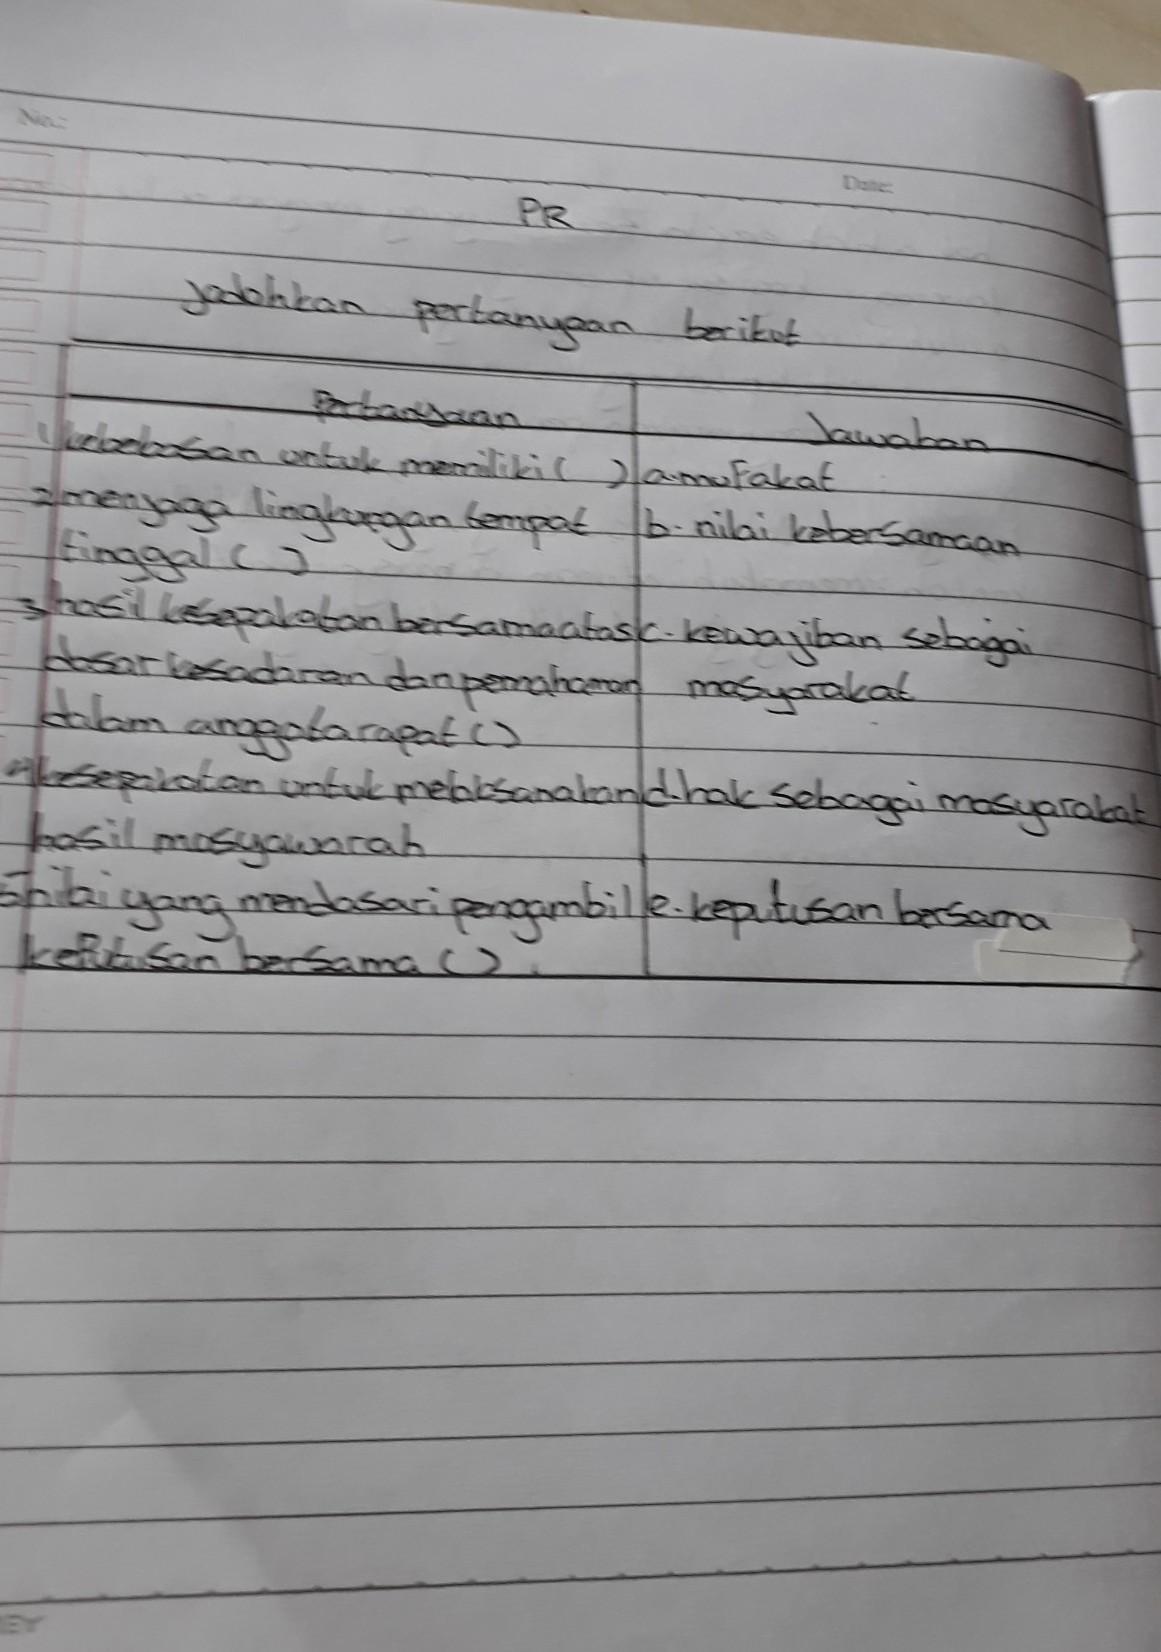 No.:
Date:
PR
Jodohkan pertanyaan berikut
Pertanyaan
Jawaban
1 kebebasan untuk memiliki ( )
a. mufakat
2 menyaga lingkungan tempat
tinggal ( )
b. nilai kebersamaan
3 hasil kesepakatan bersama atas
dasar kesadaran dan pemahaman
dalam anggota rapat ( )
c. kewajiban sebagai
masyarakat
4 kesepakatan untuk melaksanakan
hasil masyawarah
d. hak sebagai masyarakat
5 nilai yang mendasari pengambil
keputusan bersama ( ) .
e. keputusan bersama
EY